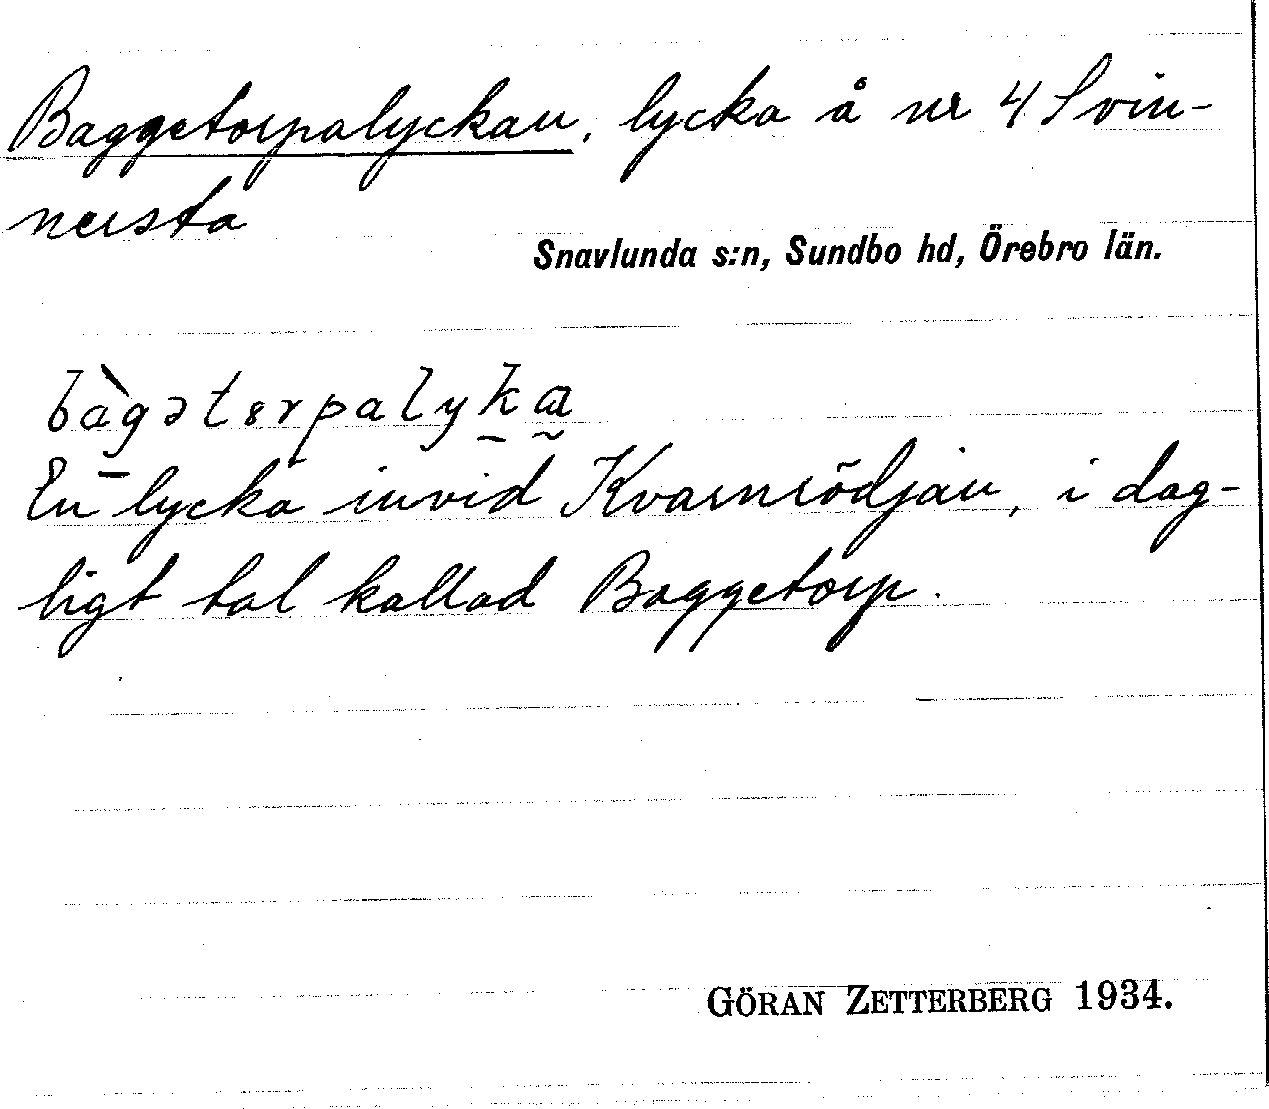 Baggetorpalyckan, lycka å nr 4 Svin-
nersta
Snavlunda s:n, Sundbo hd, Örebro län.
bàgətɘrpalyka
En lycka invid Kvarnrödjan, i dag-
ligt tal kallad Baggetorp.
GÖRAN ZETTERBERG 1934.